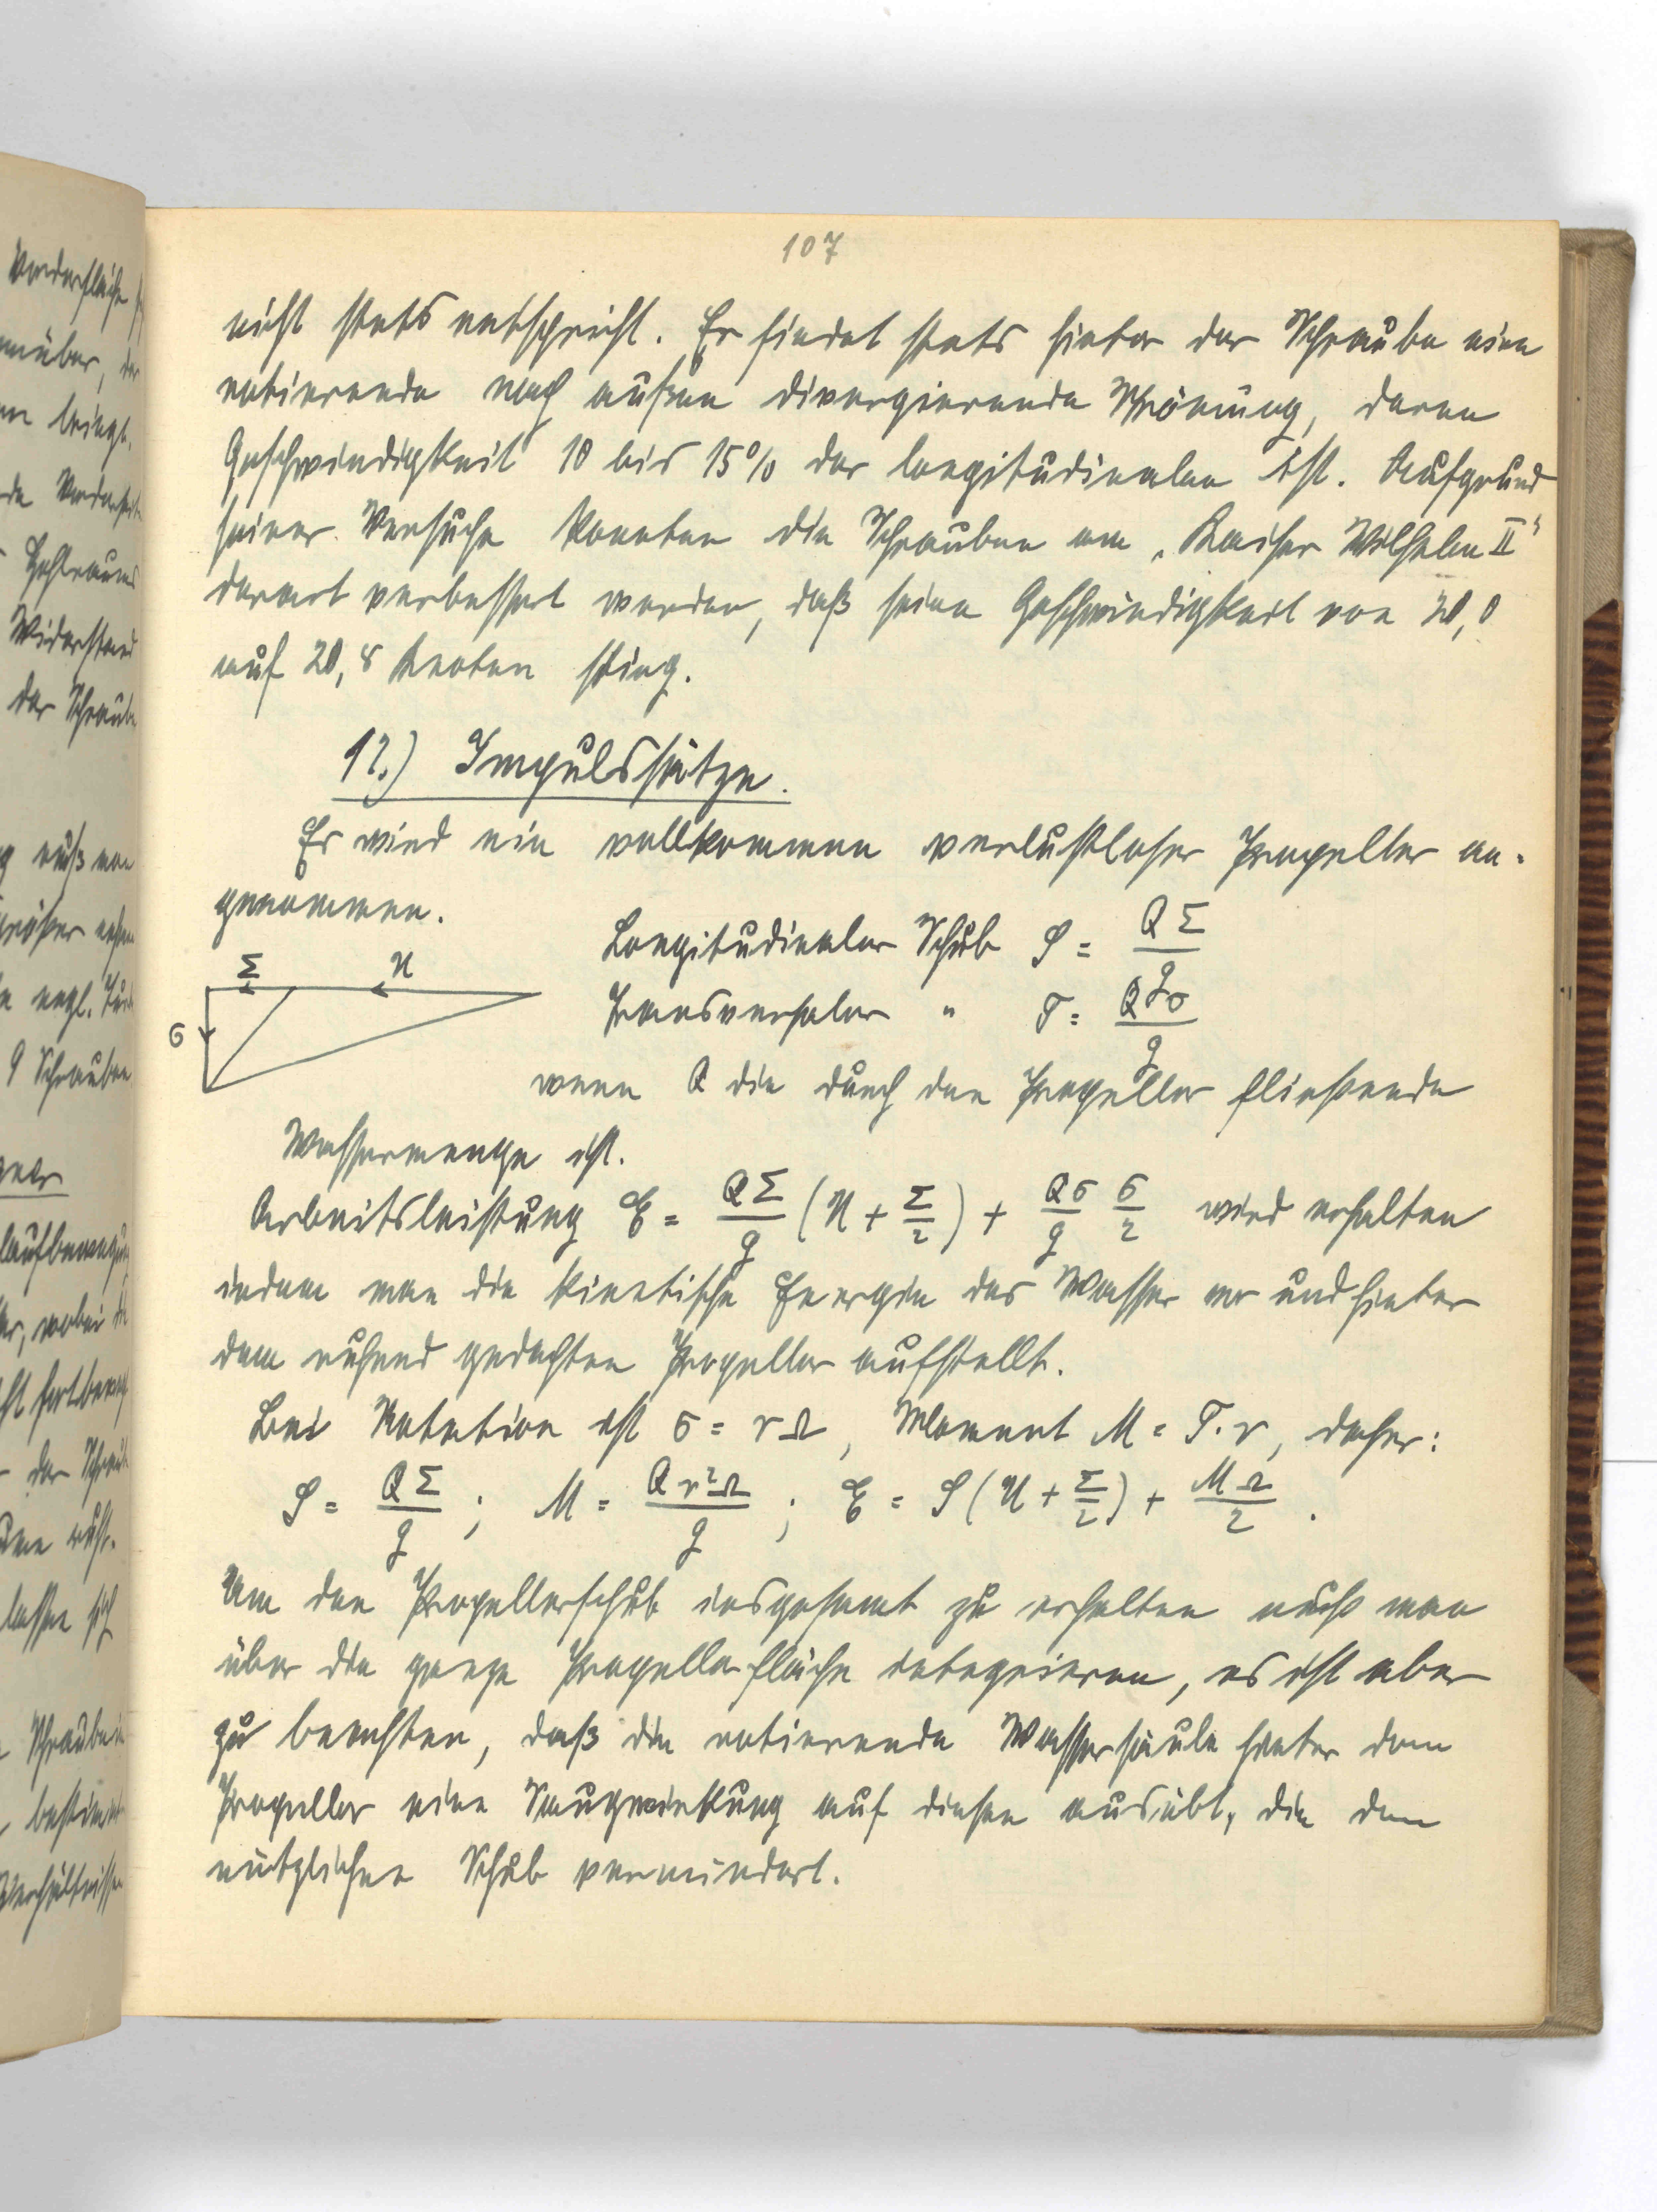 107
nicht stets entspricht. Er findet stets hinter der Schraube eine
rotierende nach außen divergierende Strömung, deren
Geschwindigkeit 10 bis 15% der longitudinalen ist. Aufgrund
seiner Versuche konnten die Schrauben am „Kaiser Wilhelm II“
derart verbessert werden, daß seine Geschwindigkeit von 20,0
auf 20,8 Knoten stieg.
12.) Impulssätze.
Es wird ein vollkommen verlustloser Propeller an-
genommen.
Longitudinaler Schub S = QΣ/g
Σ U
σ
Transversaler " T = Qσ/g
wenn Q die durch den Propeller fließende
Wassermenge ist.
Arbeitsleistung E = QΣ/g (U + Σ/2) + Qσ/g σ/2 wird erhalten
indem man die kinetische Energie des Wasser vor und hinter
dem ruhend gedachten Propeller aufstellt.
Bei Rotation ist σ = rΩ, Moment M = T·r, daher:
S = QΣ/g ; M = Qr²Ω/g ; E = S(U + Σ/2) + MΩ/2 .
Um den Propellerschub insgesamt zu erhalten muß man
über die ganze Propellerfläche integrieren, es ist aber
zu beachten, daß die rotierende Wassersäule hinter dem
Propeller eine Saugwirkung auf diesen ausübt, die den
nützlichen Schub vermindert.
Vorderfläche
der
Widerstand
der Schraube
9 Schrauben